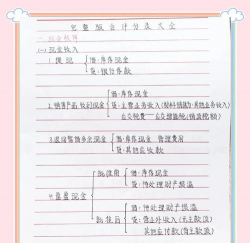 完整版会计分录大全
一、现金业务
(一)现金收入
1.提现 借:库存现金
贷:银行存款
2.销售产品收到现金 借:库存现金
贷:主营业务收入(材料销售为:其他业务收入)
应交税费——应交增值税(销项税额)
3.退回多余现金 借:库存现金 管理费用
贷:其他应收款
4.盘盈现金 批准前 借:库存现金
贷:待处理财产损溢
批准后 借:待处理财产损溢
贷:营业外收入(无主款项)
其他应付款(有主款项)